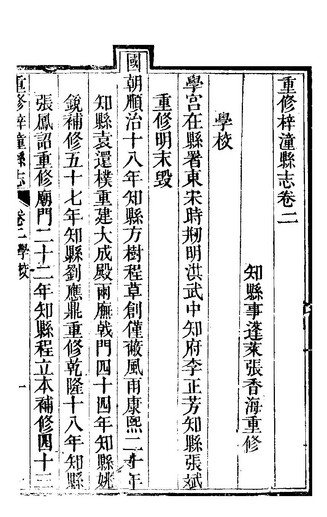 重修梓潼縣志卷二
知縣事蓬萊張香海重修
學校
學宮在縣署東宋時剏明洪武中知府李正芳知縣張斌
重修明末毀
國朝順治十八年知縣方樹程草創僅蔽風雨康熙二十年
知縣袁還樸重建大成殿兩廡戟門四十四年知縣姚
鏡補修五十七年知縣劉應鼎重修乾隆十八年知縣
張鳳詔重修廟門二十二年知縣程立本補修四十三
重修梓潼縣志 卷二學校 一